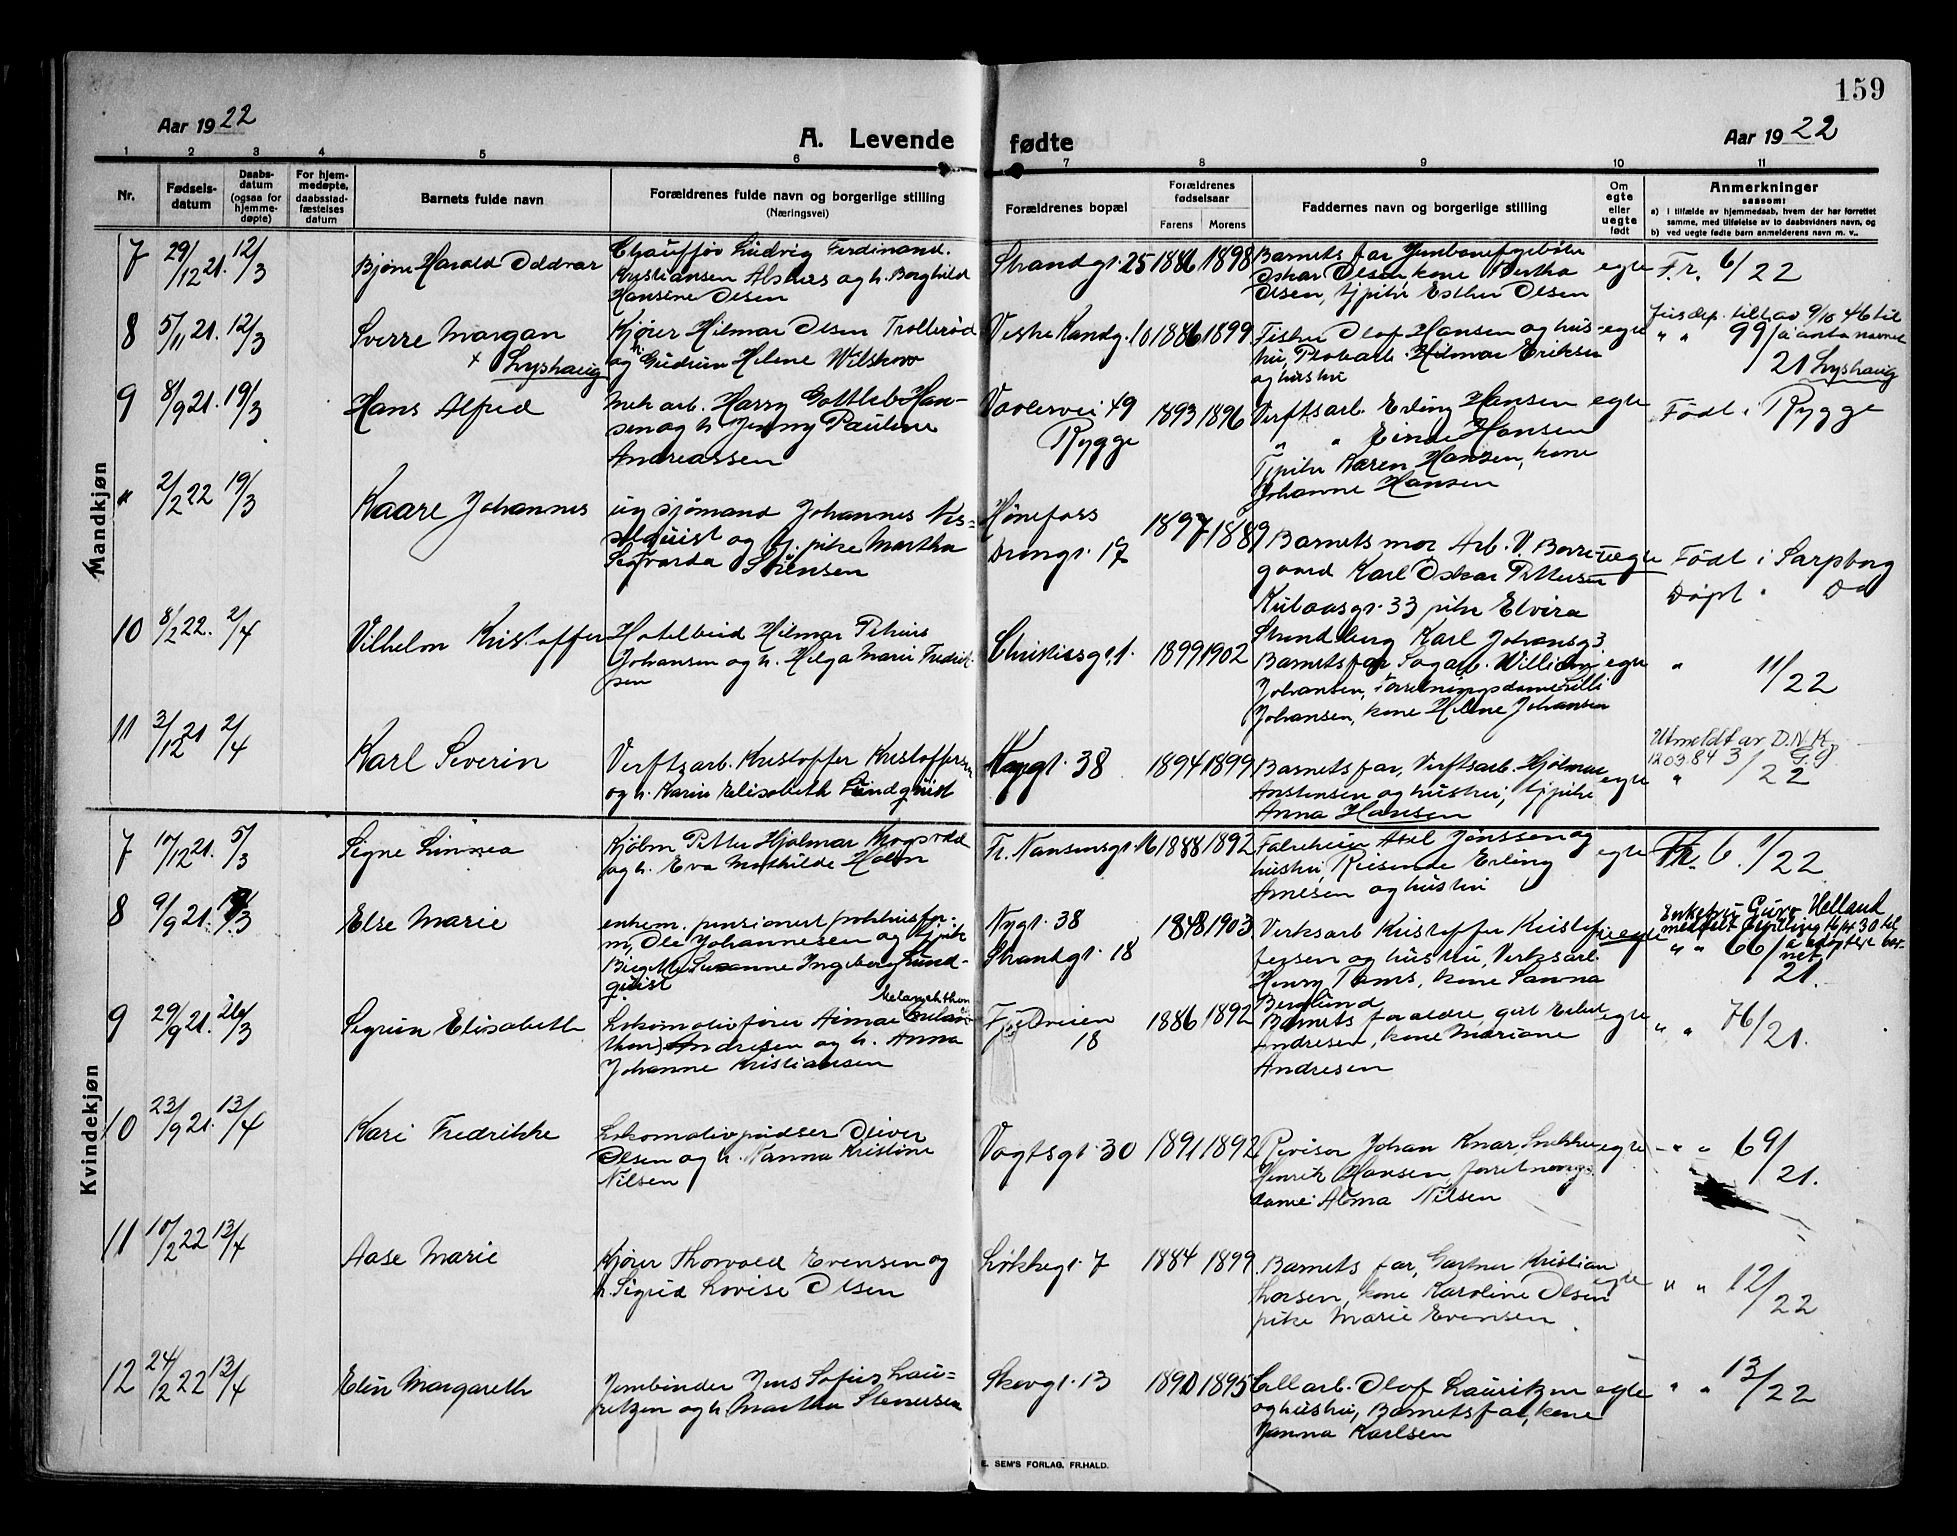 159
Aar 1922
A. Levende fødte
Aar 1922
1 2 3 4 5 6 7 8 9 10 11
Nr.
Fødsels-
datum
Daabs-
datum
(ogsaa for
hjemme-
døpte)
For hjem-
medøpte,
daabsstad-
fæstelses
datum
Barnets fulde navn
Forældrenes fulde navn og borgerlige stilling
(Næringsvei)
Forældrenes bopæl
Forældrenes
fødselsaar
Farens Morens
Faddernes navn og borgerlige stilling
Om
egte
eller
uegte
født
Anmerkninger
saasom:
a) i tilfælde av hjemmedaab, hvem der har forrettet
samme, med tilføielse av to daabsvidners navn, og
b) ved uegte fødte barn anmelderens navn m. v..
Mandkjøn
7 29/12 21. 12/3
Bjørn Harald Oddvar
Chauffør Ludvig Ferdinand
Kristiansen Alsnes og h. Borghild
Hansine Olsen
Strandgt. 25 1886 1898
Barnets far
Oskar Olsen, kone Bertha
Olsen, tjpike Esther Olsen
egte
Fr. 6/22
8 5/11 21. 12/3
Sverre Margan
+ Lyshaug
Kjører Hilmar Olsen Trollerød
og h. Gudrun Helene Wilskow
Vestre Kanalg. 10 1886 1899
Fisker Olof Hansen og hus-
tru, Hilmar Eriksen
og hustru
egte
Jusdep. till av 9/10 46 til
" " 99/21 å anta navnet
Lyshaug
9 8/9 21. 19/3
Hans Alfred
Mek arb. Harry Gottleb Han-
sen og h. Jenny Pauline
Andreassen
Vaalervei 49
Rygge
1893 1896
Verftsarb. Erling Hansen
" " Einar Hansen
Tjpike Karen Hansen, kone
Johanne Hansen
egte
Født i Rygge
" 2/2 22 19/3
Kaare Johannes
ug sjømand Johannes Nes-
selquist og tj. pike Martha
Sigvarda Sørensen
Hønefoss
Drongt. 17
1897 1889
Barnets mor, Arb. V. Borre-
gaard Karl Oskar Pettersen
Kulaasgt. 33 pike Elvira
Strindberg Karl Johansg 3
uegte
Født i Sarpborg
Døpt " Do
10 8/2 22. 2/4
Vilhelm Kristoffer
Hotelbud Hilmar Petrus
Johansen og h. Helga Marie Fredrik-
sen
Christiesgt. 1. 1899 1902
Barnets far Sagarb. William
Johansen, Forretningsdame Lilli
Johansen, kone Helene Johansen
egte
" 11/22
11 3/12 21 2/4
Karl Severin
Verftsarb. Kristoffer Kristoffersen
og h. Karin Elisabeth Lindquist
Nygt. 38 1894 1899
Barnets far, Verftsarb. Hjalmar
Anstensen og hustru, tjpike
Anna Hansen
egte
Utmeldt av D.N.K.
120384 G.P.
" 3/22
Kvindekjøn
7 10/12 21. 5/3
Signe Linnea
Kjøbm Petter Hjalmar Krogsrød
og h. Eva Mathilde Holm
Fr. Nansensgt. 16 1888 1892
Axel Jonssen og
hustru, Reisende Erling
Arnesen og hustru
egte
Fr. b. 1/22
8 9/9 21. 19/3
Else Marie
enkem. pensionert politifor-
m, Ole Johannesen og tjpike
Birgitte Susanne Ingeborg Lund-
quist
Nygt. 38
Strandgt. 18
1848 1903
Verksarb Kristoffer Kristof-
fersen og hustru, Verksarb.
Henry Tams, kone Sanna
Berglund
uegte
Enkefru Guro Helland
meddelt bevilling 16/4 30 til
" " 66/21. å adoptere bar-
net
9 29/9 21. 26/3
Sigrun Elisabeth
Melanchthon
Lokomotivfører Aimar (Melan-
thon) Andresen og h. Anna
Johanne Kristiansen
Fjeldveien
18
1886 1892
Barnets foraldre, gut Erling
Andresen, kone Mariane
Andresen
egte
" " 76/21.
10 23/9 21. 13/4
Kari Fredrikke
Lokomotivpudser Oliver
Olsen og h. Nanna Kristine
Nilsen
Vogtsgt. 30 1891 1892
Revisor Johan Knar, Snekker
Henrik Hansen, forretnings-
dame Alma Nilsen
egte
" " 69/21.
11 10/2 22 13/4
Aase Marie
Kjører Thorvald Evensen og
h. Sigrid Lovise Olsen
Løkkegt. 7 1884 1899
Barnets far, Gartner Kristian
Thorsen, kone Karoline Olsen
pike Marie Evensen.
egte
" " 12/22
12 24/2 22 13/4
Elin Margareth
Jernbinder Jens Sofus Lau-
ritzen og h. Martha Stenersen
Skovgt. 13 1890 1895
Cellarb. Olof Lauritzen
og hustru, Barnets far, kone
Janna Karlsen
egte
" " 13/22
E. SEM'S FORLAG, FR.HALD.